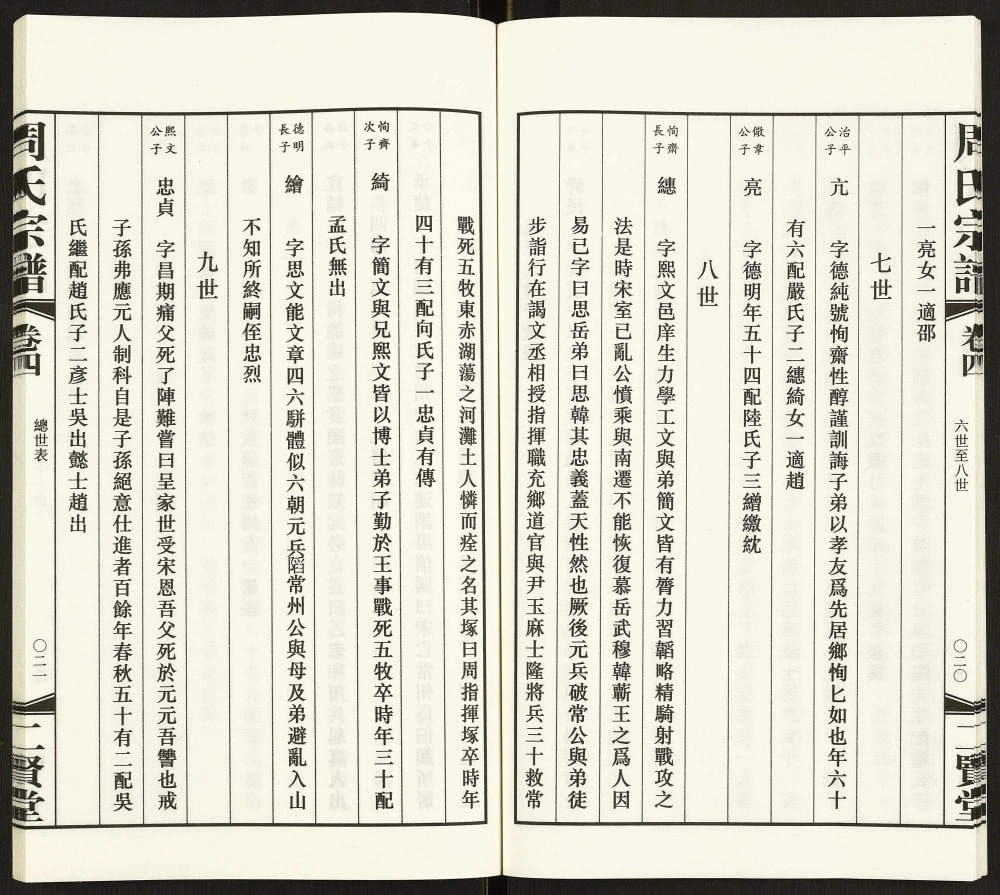 周氏宗譜
卷四
六世至八世
〇二〇
二賢堂
一亮女一適邵
七世
治平公子
亢 字德純號恂齋性醇謹訓誨子弟以孝友爲先居鄉恂匕如也年六十
有六配嚴氏子二纁綺女一適趙
儆韋公子
亮 字德明年五十四配陸氏子三繒繳紞
恂齋長子
纁 字熙文邑庠生力學工文與弟簡文皆有膂力習韜略精騎射戰攻之
八世
法是時宋室已亂公憤乘與南遷不能恢復慕岳武穆韓蘄王之爲人因
易已字曰思岳弟曰思韓其忠義蓋天性然也厥後元兵破常公與弟徒
步詣行在謁文丞相授指揮職充鄉道官與尹玉麻士隆將兵三十救常
戰死五牧東赤湖蕩之河灘土人憐而痊之名其塚曰周指揮塚卒時年
四十有三配向氏子一忠貞有傳
恂齊次子
綺 字簡文與兄熙文皆以博士弟子勤於王事戰死五牧卒時年三十配
孟氏無出
德明長子
繪 字思文能文章四六駢體似六朝元兵䧟常州公與母及弟避亂入山
不知所終嗣侄忠烈
九世
熙文公子
忠貞 字昌期痛父死了陣難嘗曰呈家世受宋恩吾父死於元元吾讐也戒
子孫弗應元人制科自是子孫絕意仕進者百餘年春秋五十有二配吳
氏繼配趙氏子二彥士吳出懿士趙出
周氏宗譜
卷四
總世表
〇二一
二賢堂